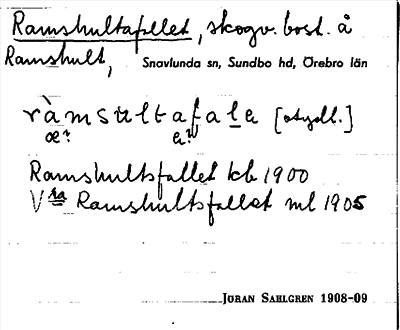 Ramshultafallet, skogv. bost. å
Ramshult,
Snavlunda sn, Sundbo hd, Örebro län
ràmsultafala [otydl.]
æ?
Ramshultsfallet kb 1900
Vra Ramshultsfallet ml 1905
JÖRAN SAHLGREN 1908-09